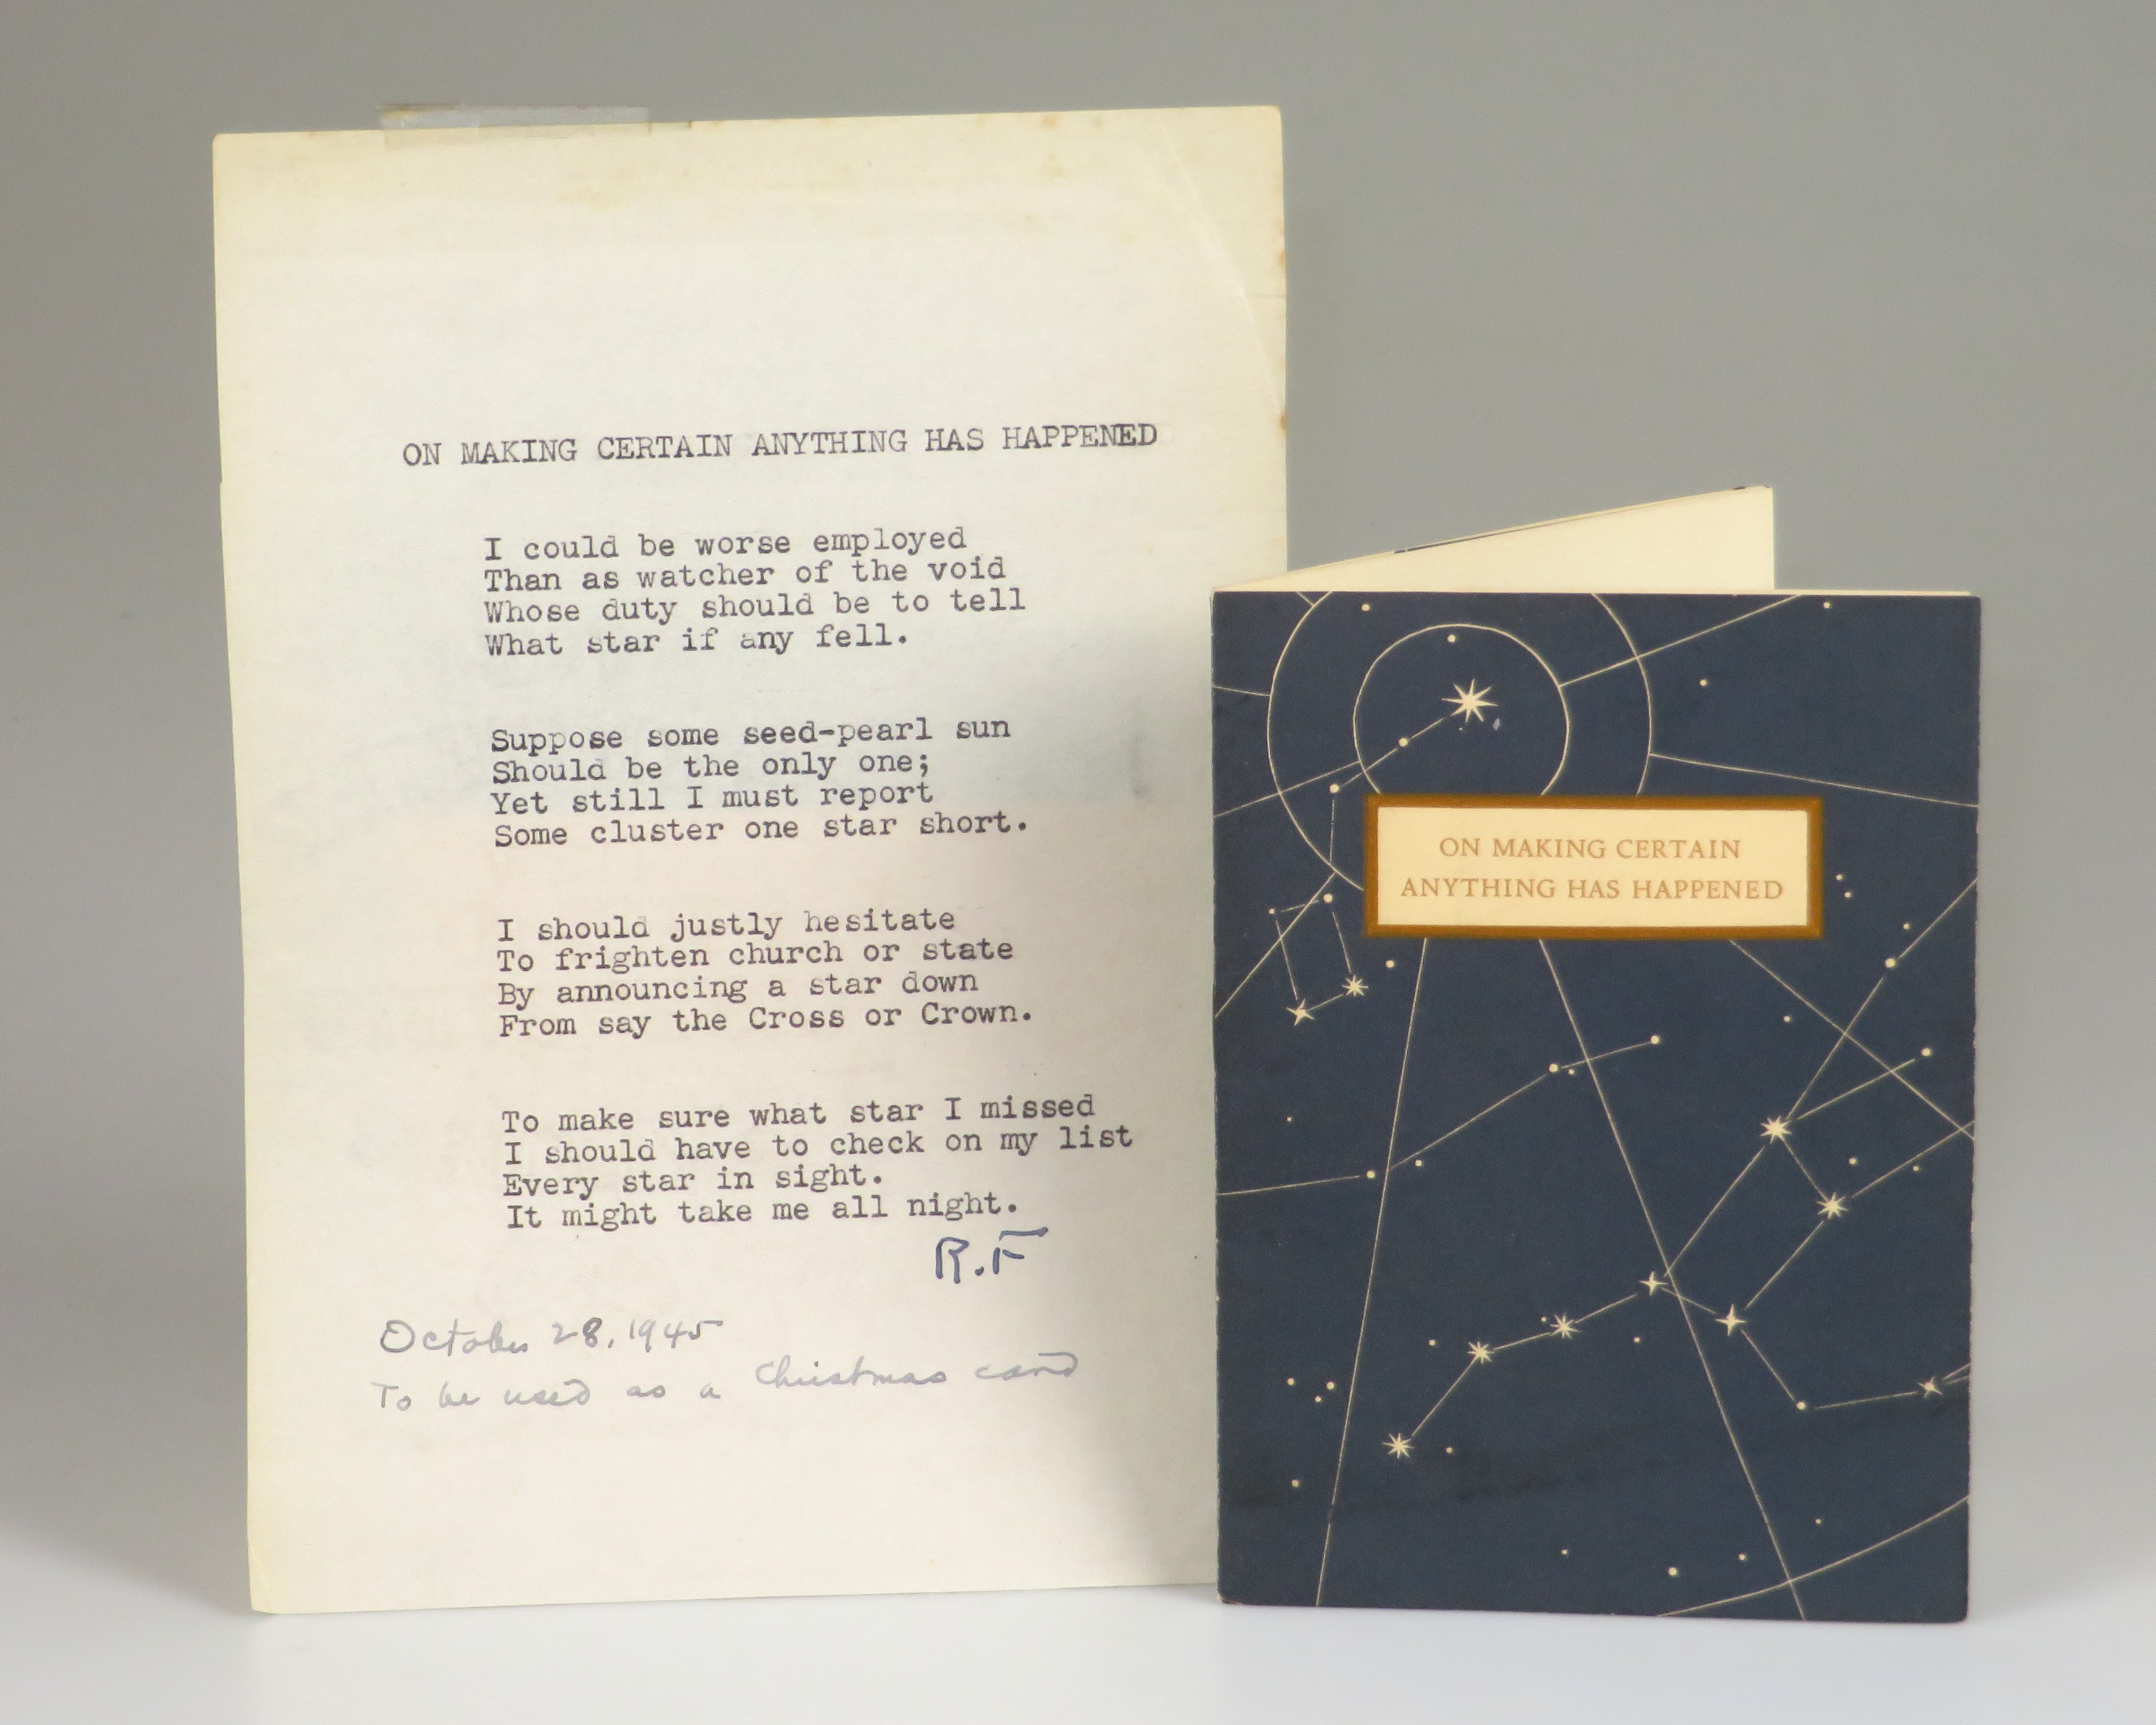 ON MAKING CERTAIN ANYTHING HAS HAPPENED
I could be worse employed
Than as watcher of the void
Whose duty should be to tell
What star if any fell.
Suppose some seed-pearl sun
Should be the only one;
Yet still I must report
Some cluster one star short.
I should justly hesitate
To frighten church or state
By announcing a star down
From say the Cross or Crown.
To make sure what star I missed
I should have to check on my list
Every star in sight.
It might take me all night.
R.F
October 28, 1945
To be used as a Christmas card
ON MAKING CERTAIN
ANYTHING HAS HAPPENED